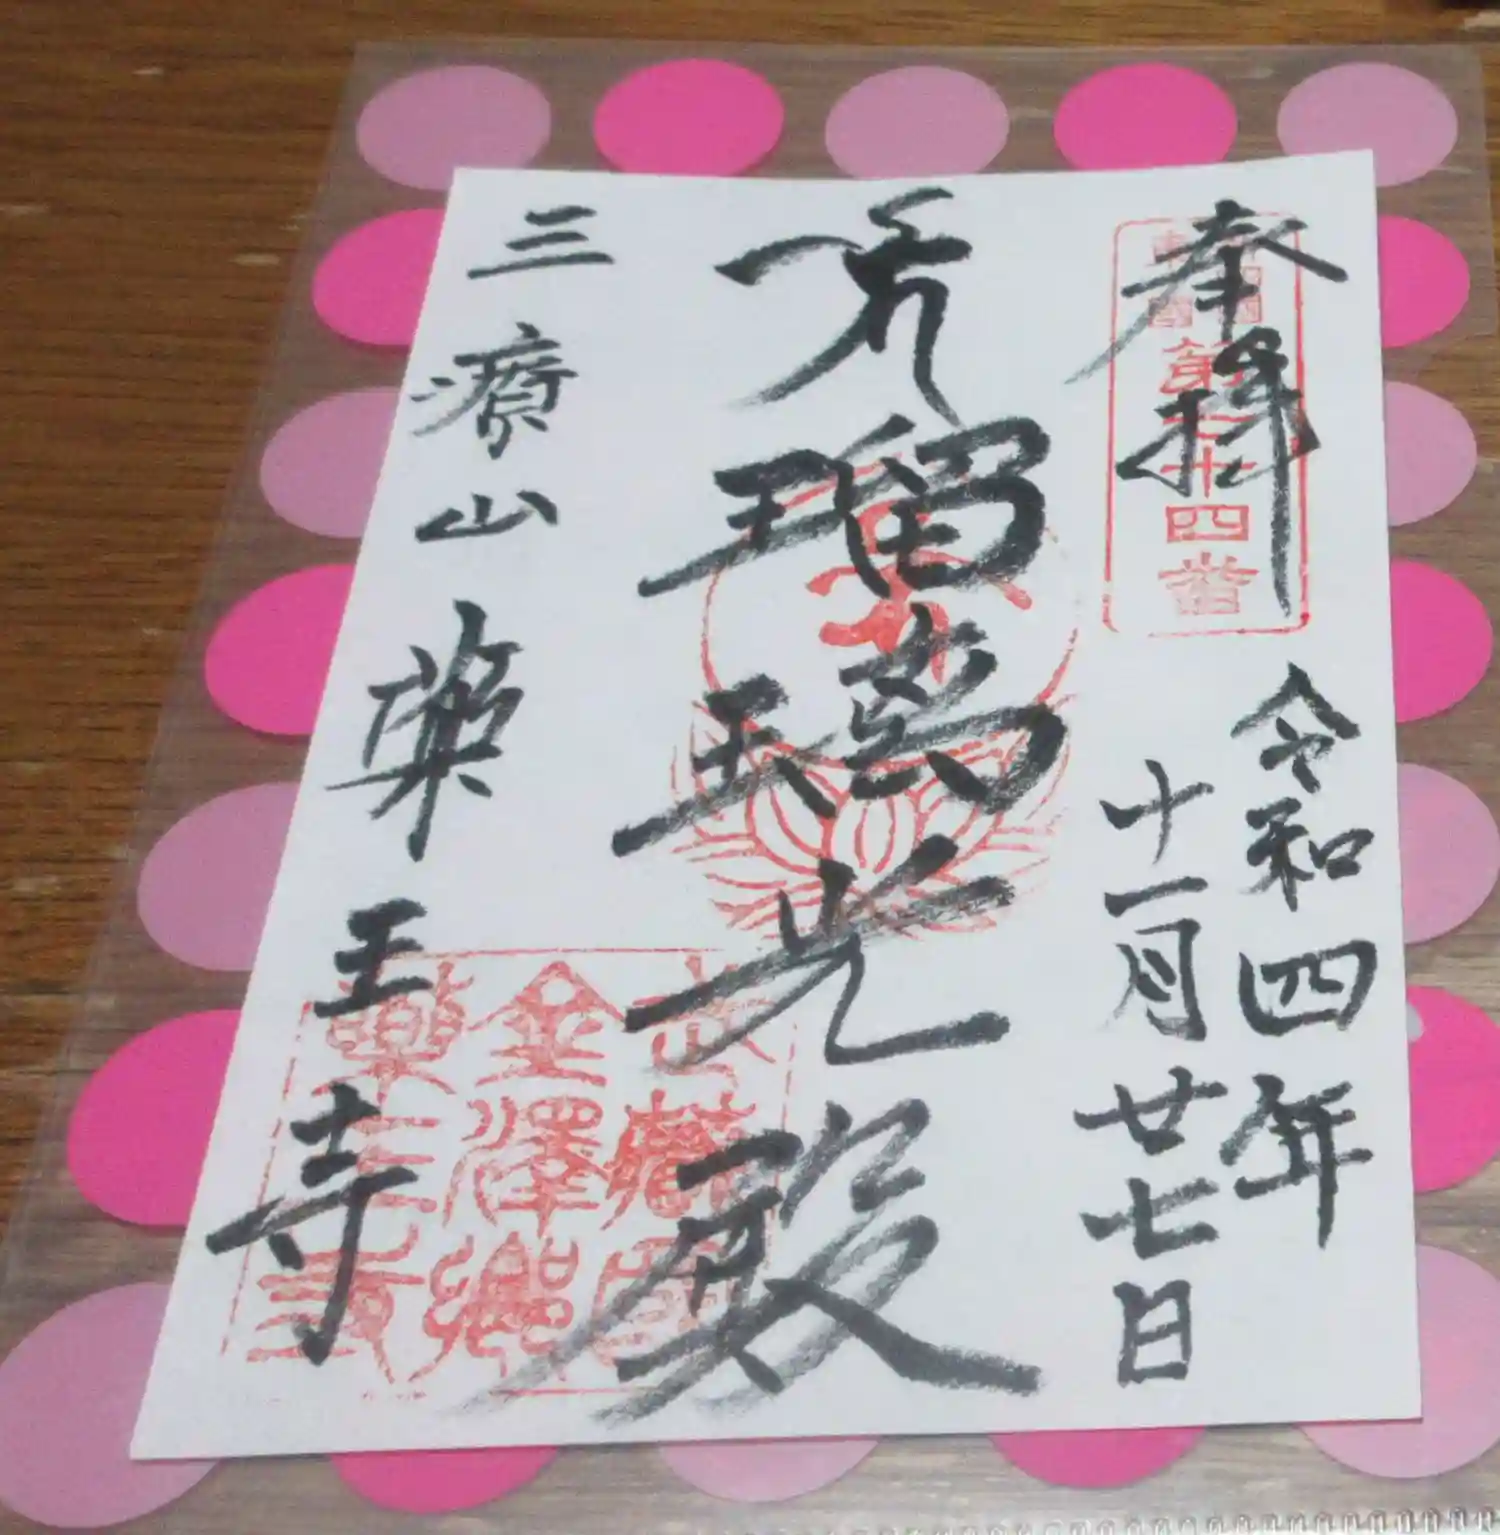 奉拝
第七十四番
令和四年
十一月廿七日
瑠璃光殿
三療山薬王寺
武蔵國
金澤郷
藥王寺